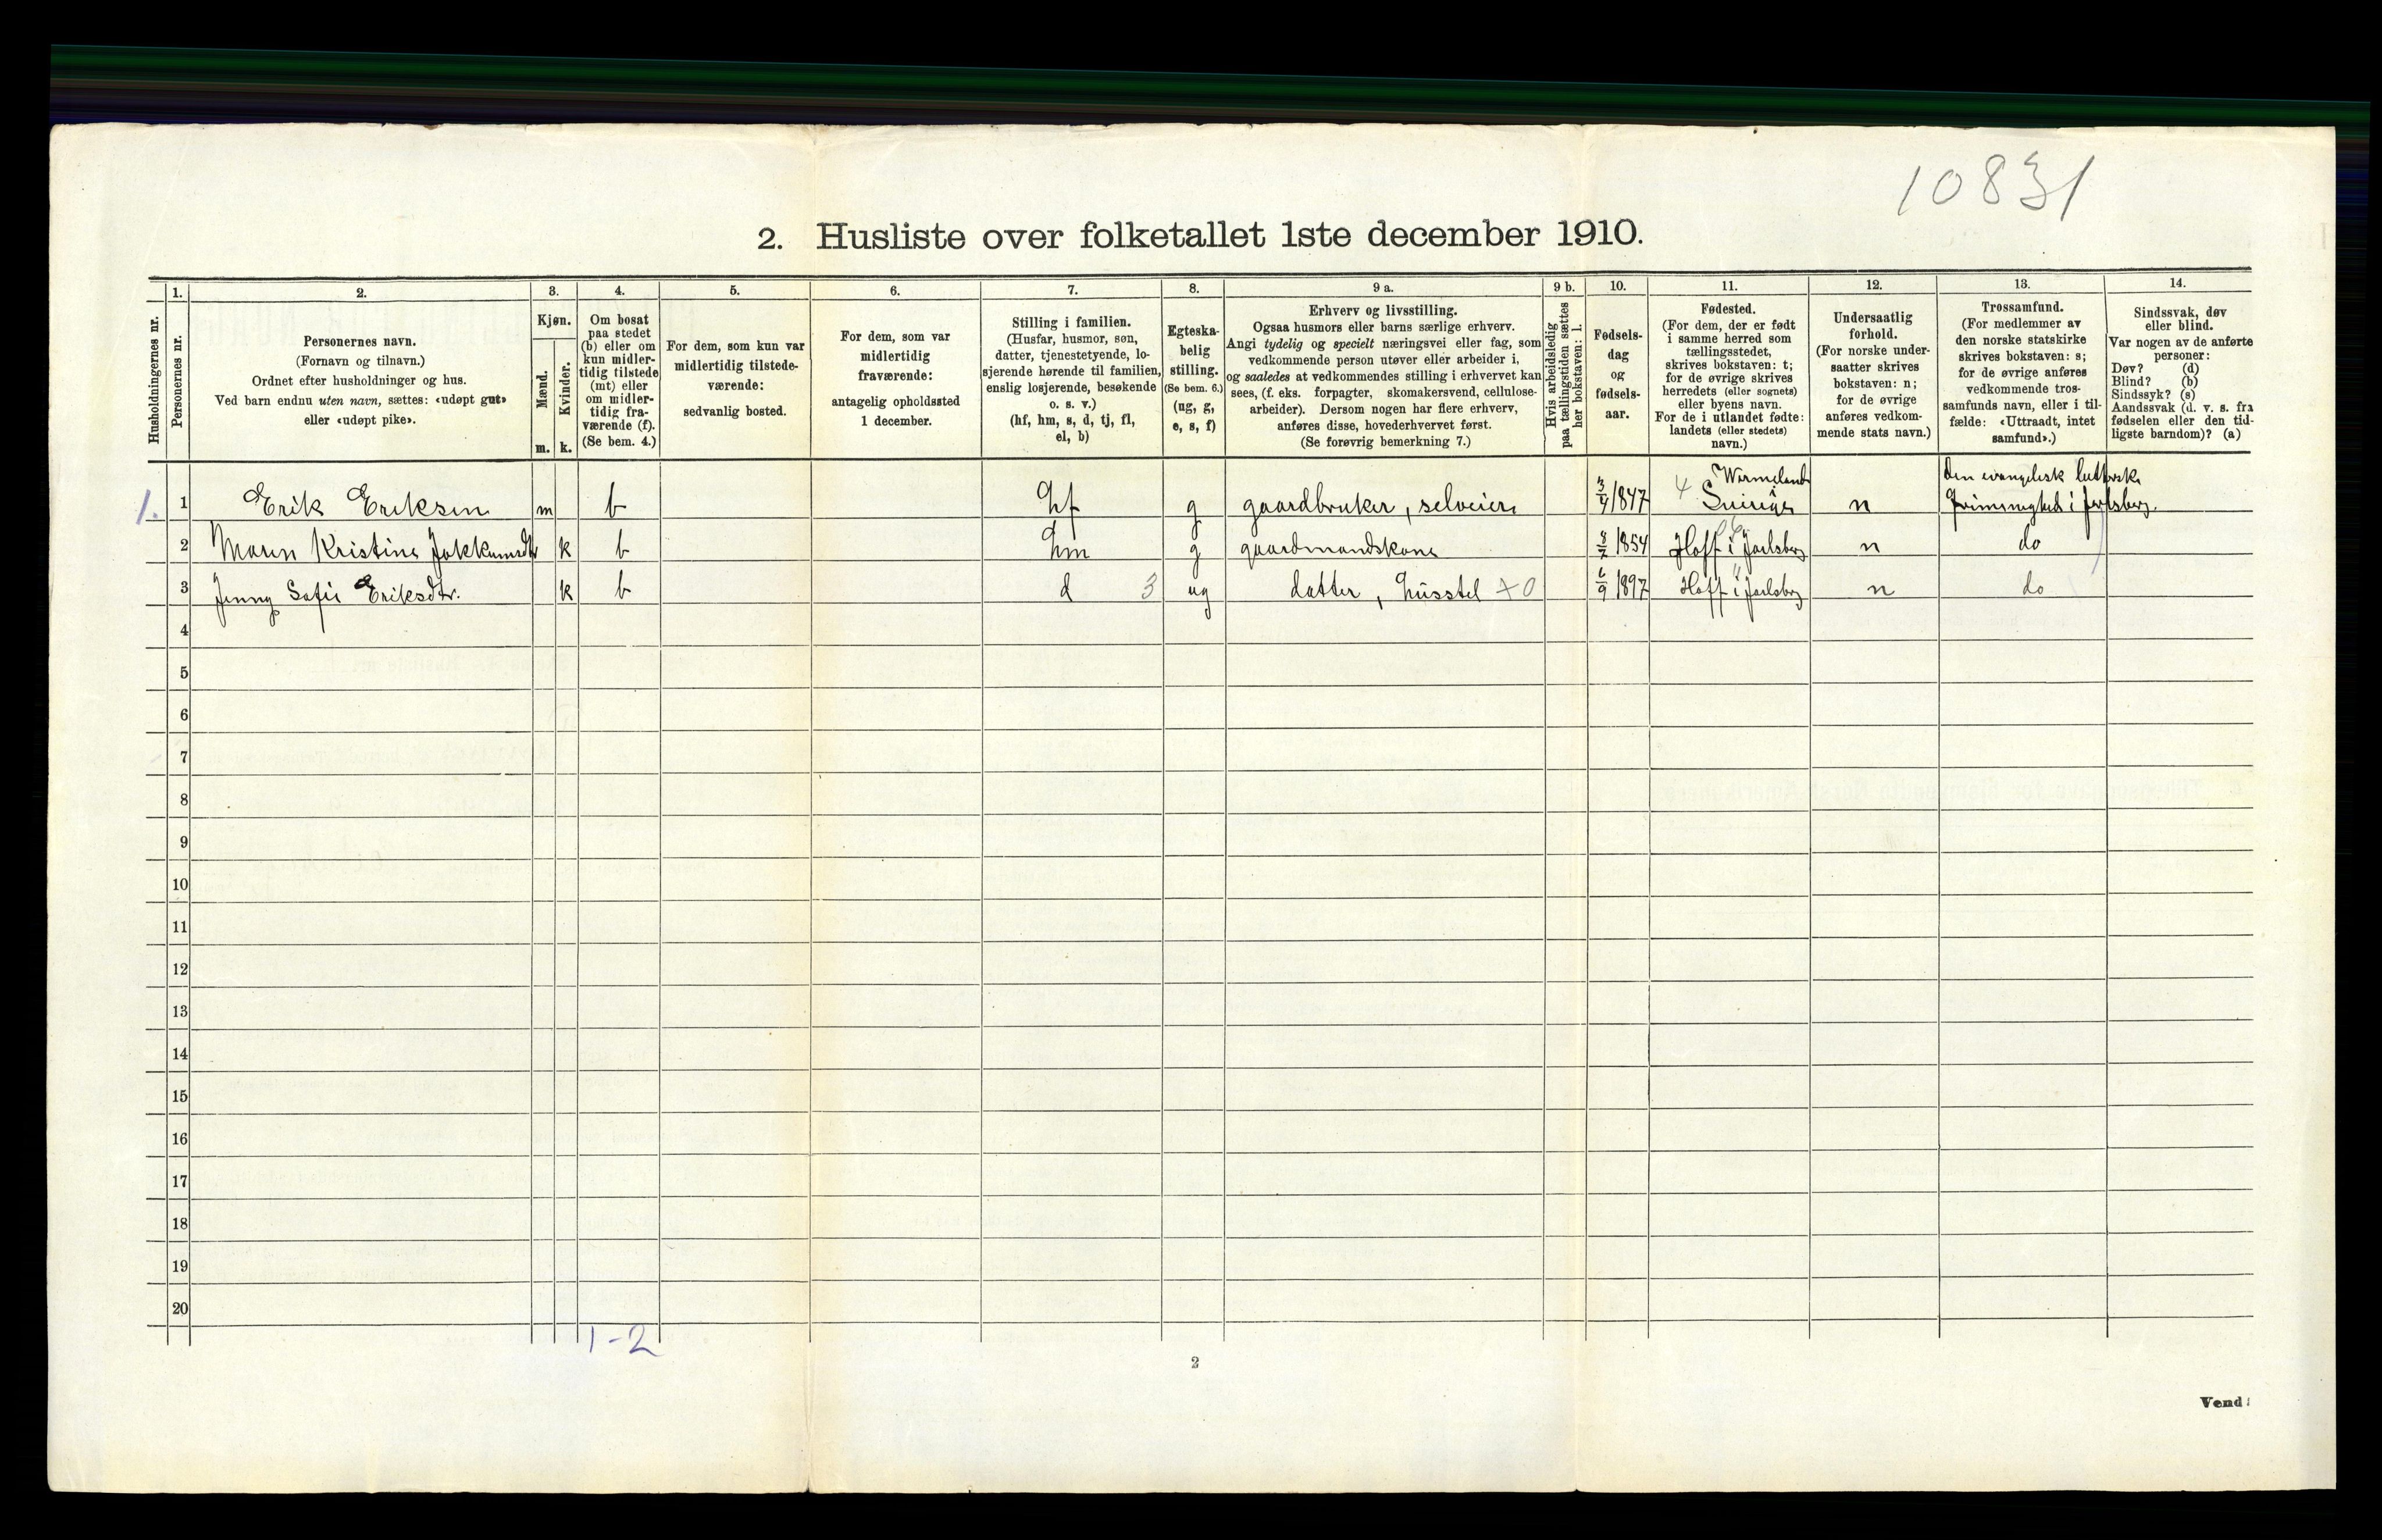 10831
2. Husliste over folketallet 1ste december 1910.
Husholdningernes nr.
1.
Personernes nr.
2.
Personernes navn.
(Fornavn og tilnavn.)
Ordnet efter husholdninger og hus.
Ved barn endnu uten navn, sættes: «udøpt gut»
eller «udøpt pike».
3.
Kjøn.
Mænd.
Kvinder.
m. k.
4.
Om bosat
paa stedet
(b) eller om
kun midler-
tidig tilstede
(mt) eller
om midler-
tidig fra-
værende (f).
(Se bem. 4.)
5.
For dem, som kun var
midlertidig tilstede-
værende:
sedvanlig bosted.
6.
For dem, som var
midlertidig
fraværende:
antagelig opholdssted
1 december.
7.
Stilling i familien.
(Husfar, husmor, søn,
datter, tjenestetyende, lo-
sjerende hørende til familien,
enslig losjerende, besøkende
o. s. v.)
(hf, hm, s, d, tj, fl,
el, b)
8.
Egteska-
belig
stilling.
(Se bem. 6.)
(ug, g,
e, s, f)
9 a.
Erhverv og livsstilling.
Ogsaa husmors eller barns særlige erhverv.
Angi tydelig og specielt næringsvei eller fag, som
vedkommende person utøver eller arbeider i,
og saaledes at vedkommendes stilling i erhvervet kan
sees, (f. eks. forpagter, skomakersvend, cellulose-
arbeider). Dersom nogen har flere erhverv,
anføres disse, hovederhvervet først.
(Se forøvrig bemerkning 7.)
9 b.
Hvis arbeidsledig
paa tællingstiden sættes
her bokstaven: l.
10.
Fødsels-
dag
og
fødsels-
aar.
11.
Fødested.
(For dem, der er født
i samme herred som
tællingsstedet,
skrives bokstaven: t;
for de øvrige skrives
herredets (eller sognets)
eller byens navn.
For de i utlandet fødte:
landets (eller stedets)
navn.)
12.
Undersaatlig
forhold.
(For norske under-
saatter skrives
bokstaven: n;
for de øvrige
anføres vedkom-
mende stats navn.)
13.
Trossamfund.
(For medlemmer av
den norske statskirke
skrives bokstaven: s;
for de øvrige anføres
vedkommende tros-
samfunds navn, eller i til-
fælde: «Uttraadt, intet
samfund».)
14.
Sindssvak, døv
eller blind.
Var nogen av de anførte
personer:
Døv? (d)
Blind? (b)
Sindssyk? (s)
Aandssvak (d. v. s. fra
fødselen eller den tid-
ligste barndom)? (a)
1. 1 Erik Eriksen m b hf g gaardbruker, selveier 3/4 1847 4 Wermeland Sverige n Den evangelisk lutherske frimenighed i Jarlsberg.
2 Maren Kristine Jokkumsdtr k b hm g gaardmandskone 8/2 1854 Hoff i Jarlsberg n do
3 Jenny Sofie Eriksdtr. k b d 3 ug datter, husstel 70 6/9 1897 Hoff i Jarlsberg n do
4
5
6
7
8
9
10
11
12
13
14
15
16
17
18
19
20
1-2
2
Vend!